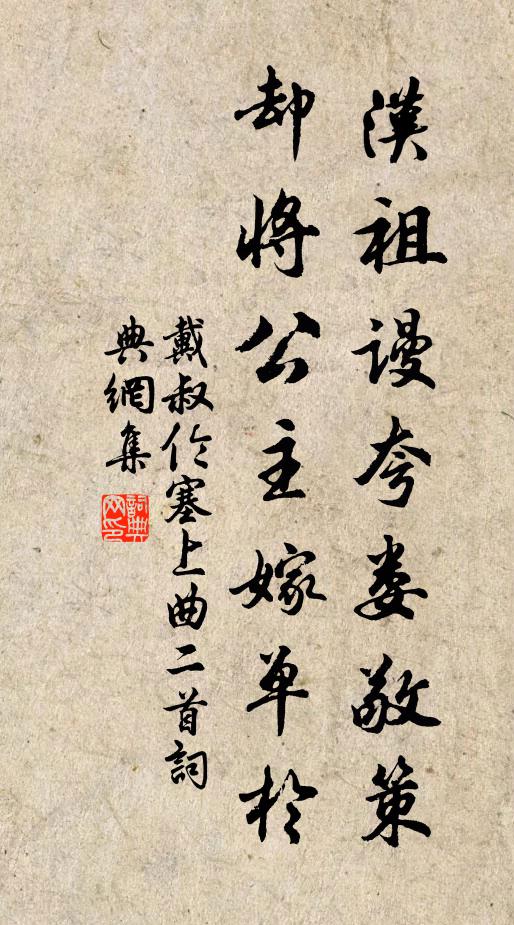 漢祖謾夸婁敬策
却將公主嫁单於
戴叔伦塞上曲二首詞
典網集
詞典
网印